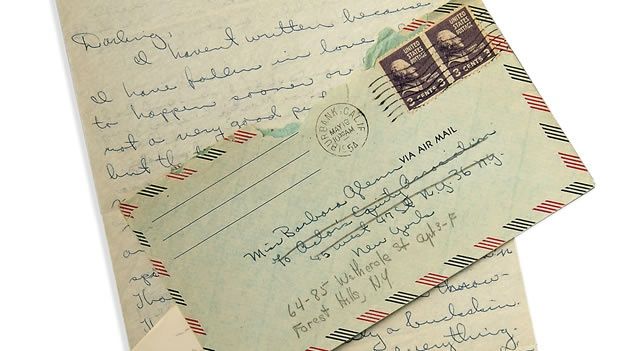 Darling,
I haven't written because
I have fallen in love
to happen sooner or
not a very good pe
but the
UNITED STATES POSTAGE
3 CENTS 3
UNITED STATES POSTAGE
3 CENTS 3
BURBANK, CALIF.
MAY 19
AM
1954
VIA AIR MAIL
Miss Barbara Glenn
% Actors Equity Association
45 West 47 St. N.Y. 36 N.Y.
New York
64-85 Wetherole St Apt 3-F
Forest Hills, NY
an
spo
Tha
on
row-
a buckskin.
everything.